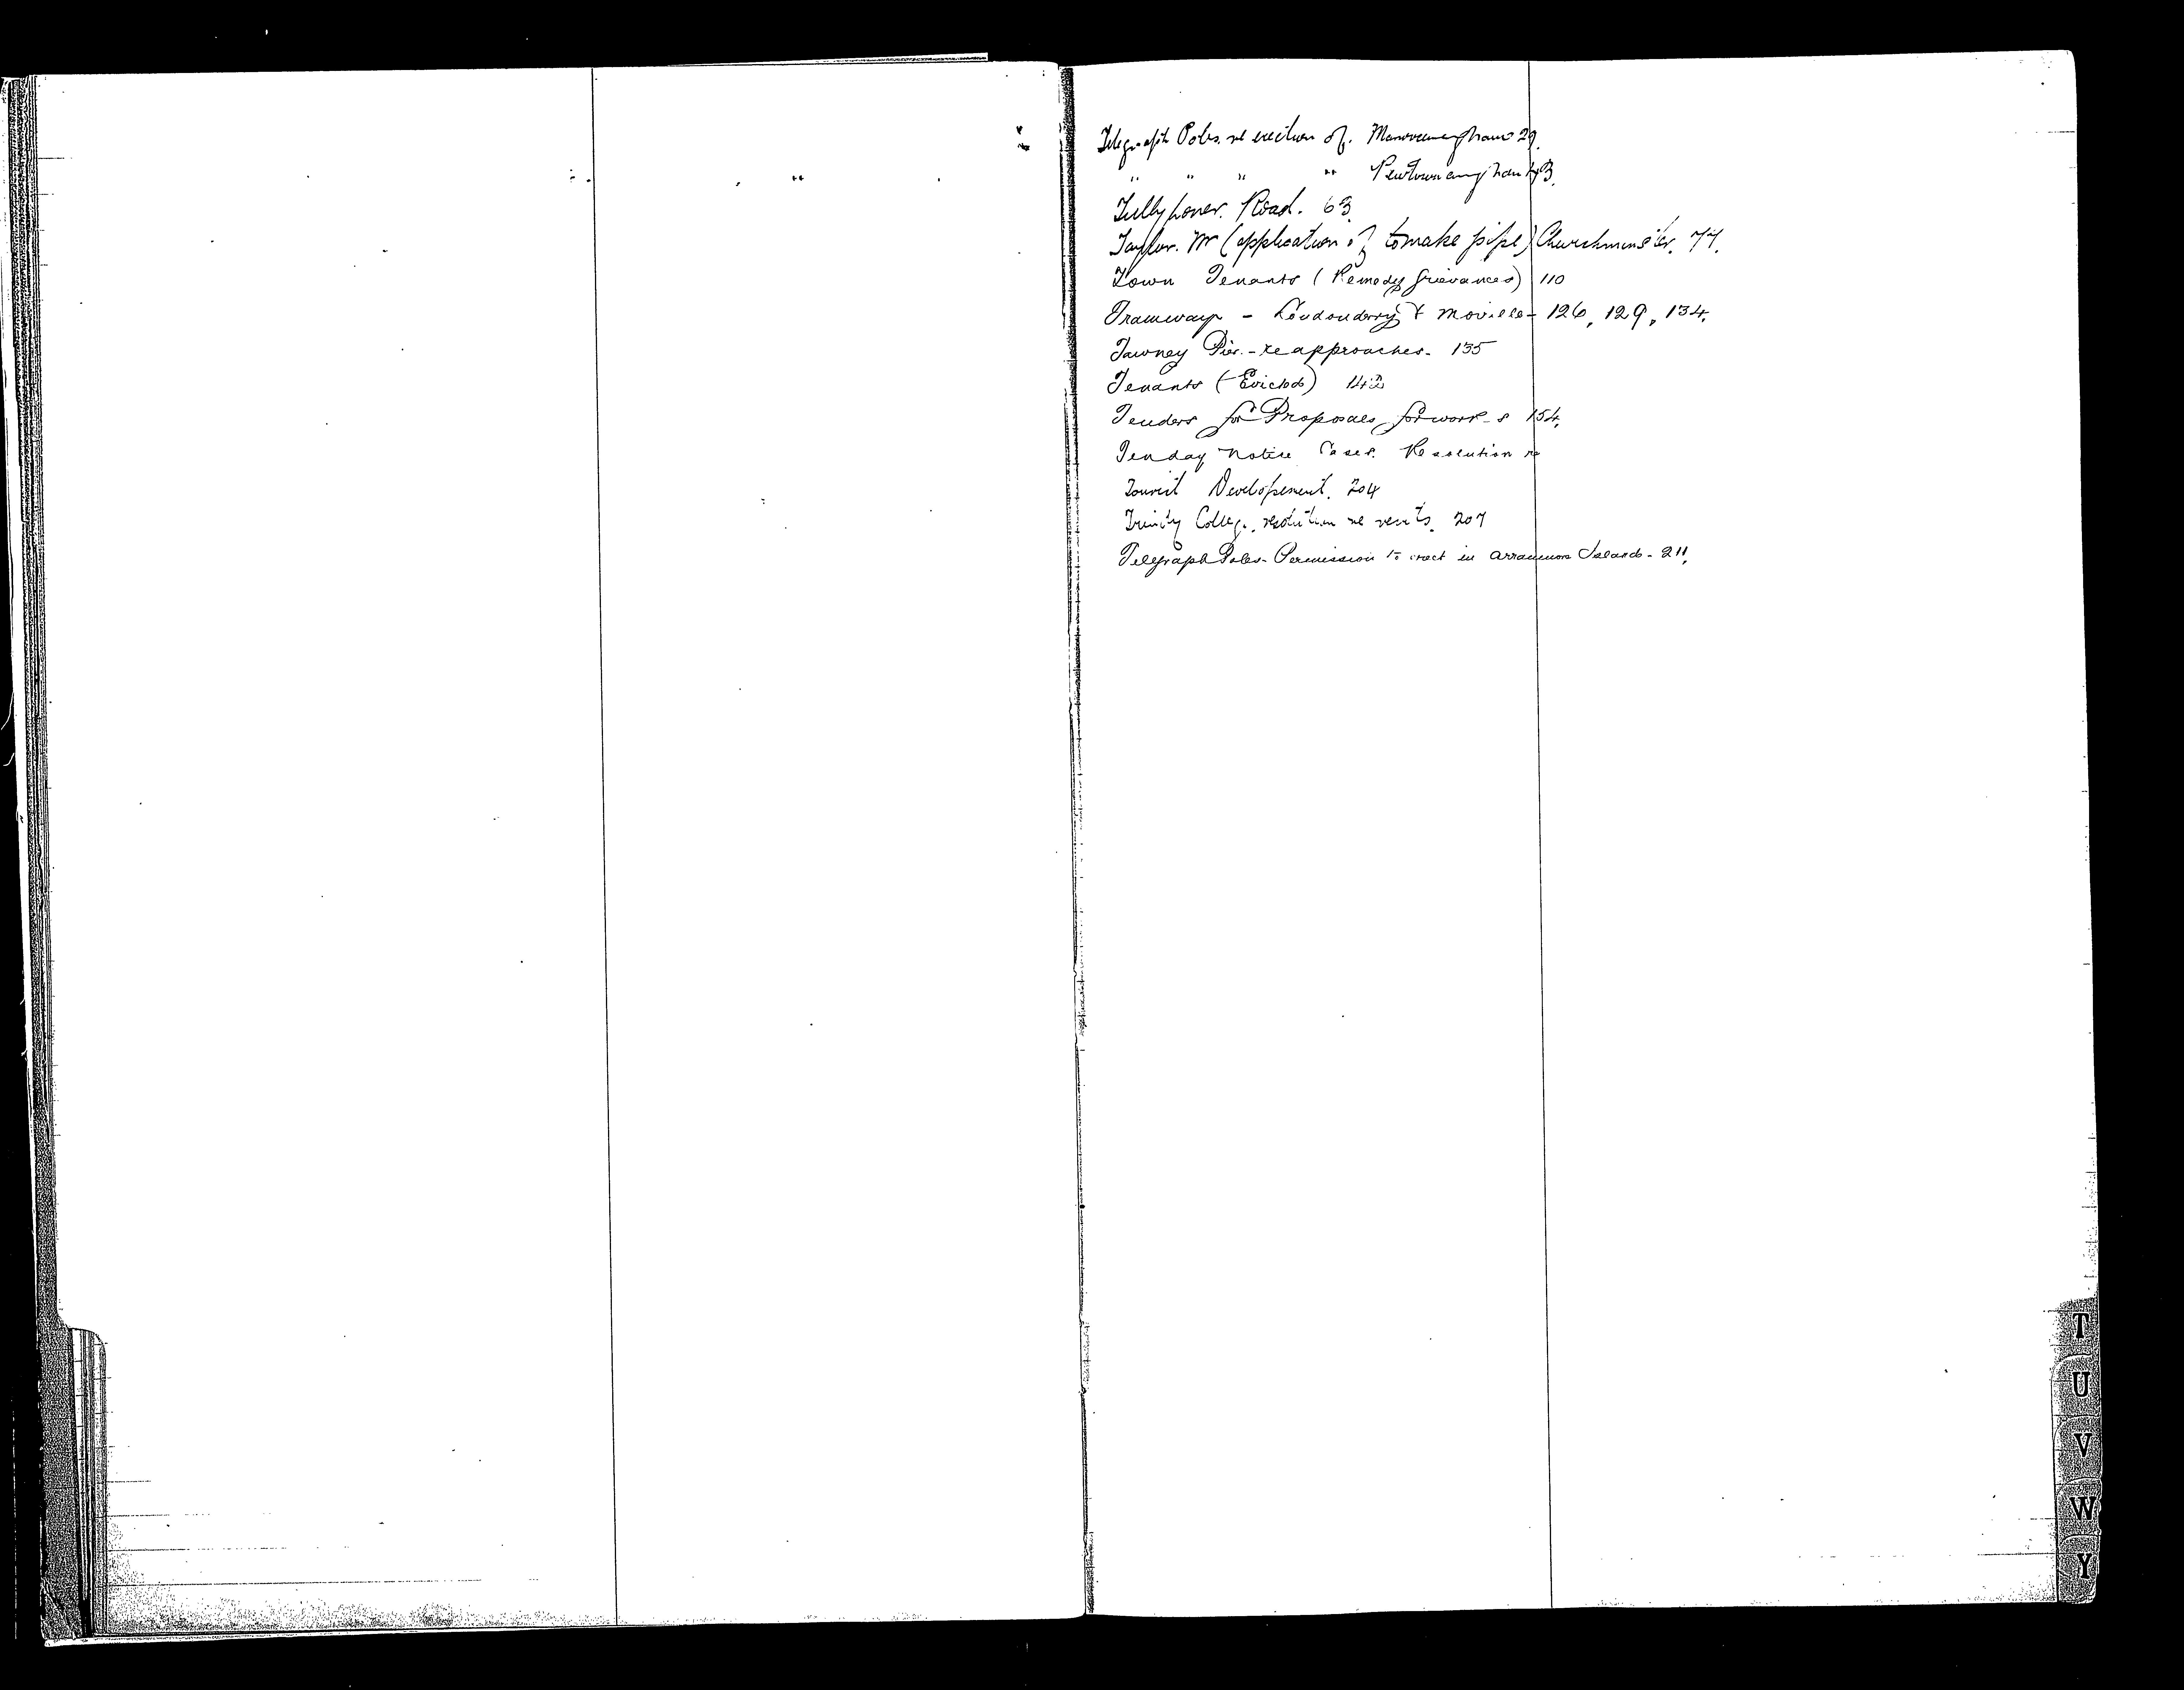 Telegraph Poles. re erection of. Manorcunningham 29.
" " " " Newtowncunningham 43.
Tullyhoner. Road. 63.
Taylor. Mr (application of to make pipe) Churchminster. 77.
Town Tenants (Remedy grievances) 110
Tramways - Londonderry & Moville - 126, 129, 134.
Tawney Pier. - re approaches. 135
Tenants (Evicted) 142
Tenders for Proposals for works 154.
Tenday Notice Cases. Resolution re
Tourist Developement. 204
Trinity College. resolution re rents. 207
Telegraph Poles - Permission to erect in Arranmore Island - 211.
T
U
V
W
Y